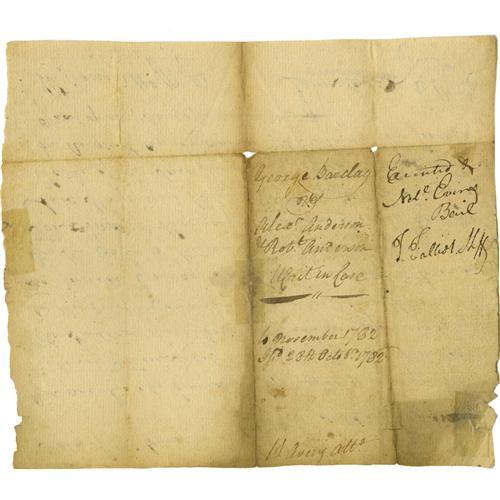 George Barclay
vs
Alexr. Anderson
& Robt. Anderson
Writ in Case
November 1782
28th Octobr. 1782
Avery Atto.
Executed &
Bail
J. Talbot Shff